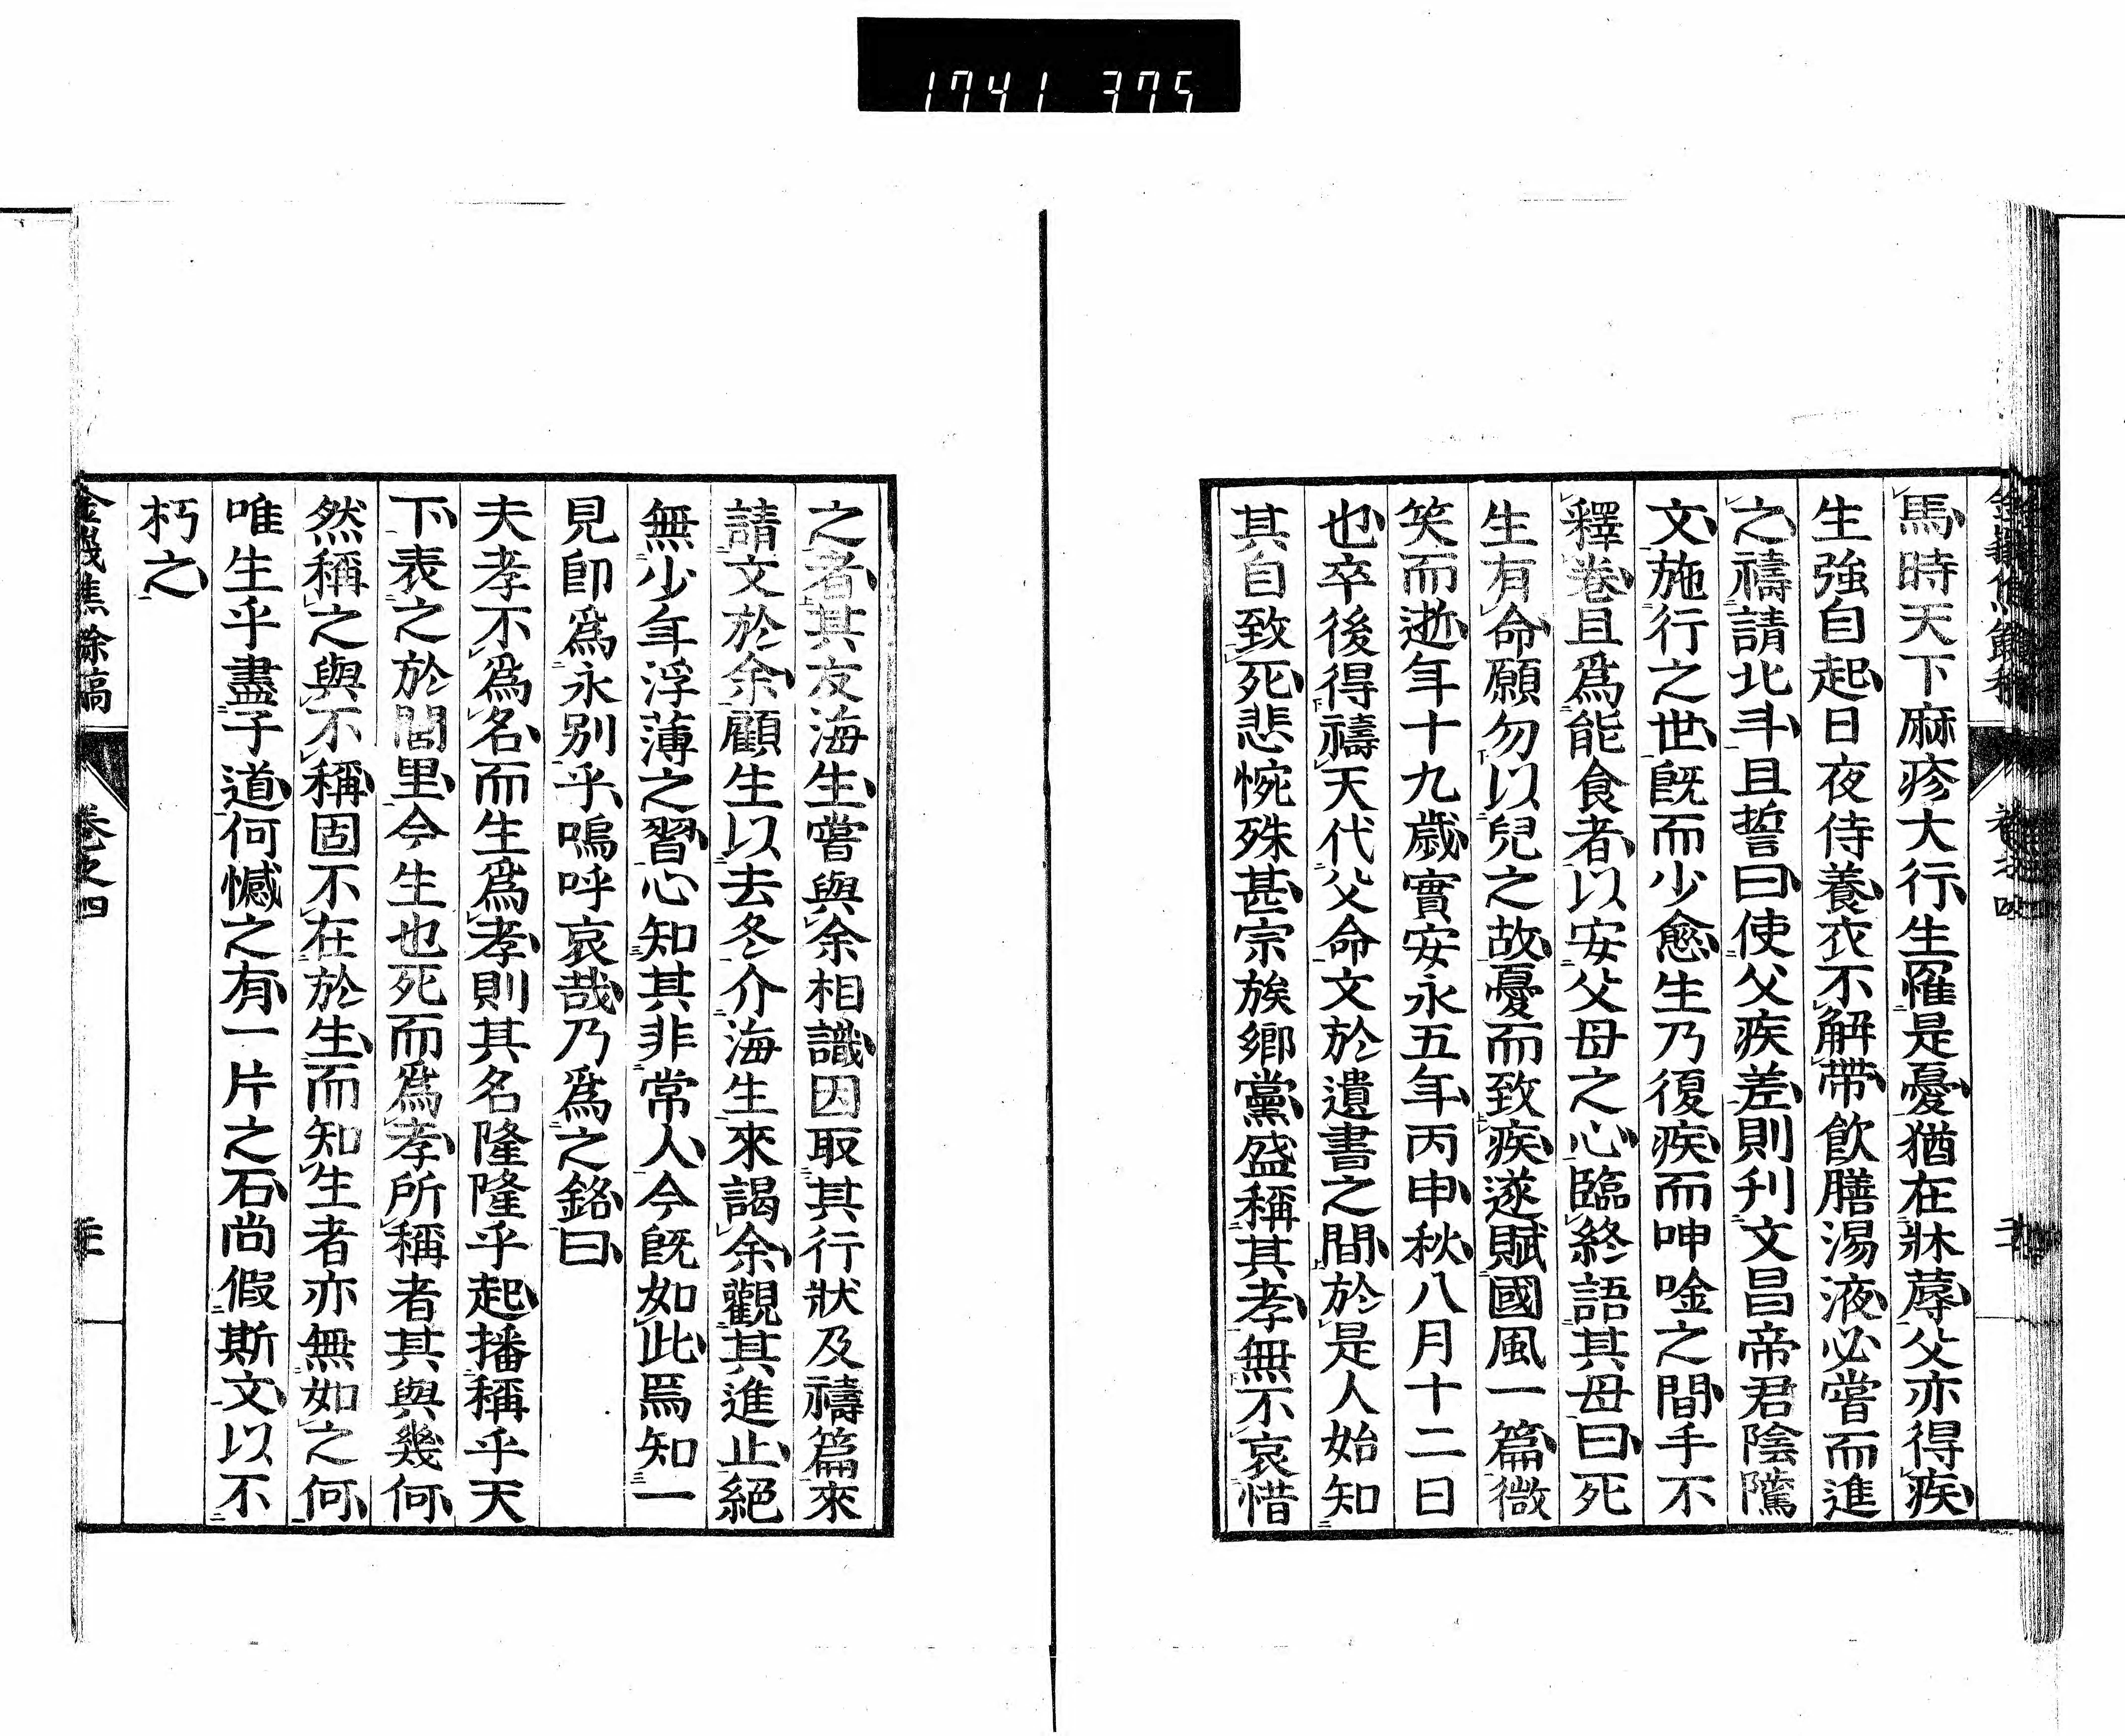 1741 375
馬時天下麻疹大行生罹是憂猶在牀蓐父亦得疾
生強自起日夜侍養衣不解帶飲膳湯液必嘗而進
之禱請北斗且誓曰使父疾差則刋文昌帝君陰隲
文施行之世既而少愈生乃復疾而呻唫之間手不
釋卷且爲能食者以安父母之心臨終語其母曰死
生有命願勿以兒之故憂而致疾遂賦國風一篇微
笑而逝年十九歲實安永五年丙申秋八月十二日
也卒後得禱天代父命文於遺書之間於是人始知
其自致死悲惋殊甚宗族鄉黨盛稱其孝無不哀惜
之者其友海生嘗與余相識因取其行狀及禱篇來
請文於余顧生以去冬介海生來謁余觀其進止絕
無少年浮薄之習心知其非常人今既如此焉知一
見卽爲永別乎嗚呼哀哉乃爲之銘曰
夫孝不爲名而生爲孝則其名隆隆乎起播稱乎天
下表之於閭里今生也死而爲孝所稱者其與幾何
然稱之與不稱固不在於生而知生者亦無如之何
唯生乎盡子道何憾之有一片之石尚假斯文以不
朽之
卷之四